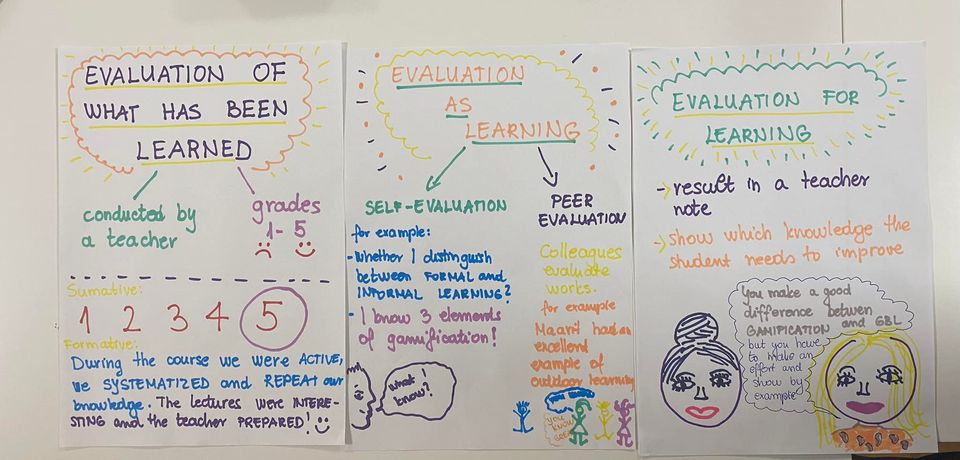 EVALUATION OF
WHAT HAS BEEN
LEARNED
conducted by
a teacher
grades
1-5
Sumative:
1 2 3 4 5
Formative:
During the course we were ACTIVE,
we SYSTEMATIZED and REPEAT our
knowledge. The lectures were INTERE-
STING and the teacher PREPARED!
EVALUATION
AS
LEARNING
SELF-EVALUATION
for example:
-Whether I distinguish
between FORMAL and
INFORMAL LEARNING?
- I know 3 elements
of gamification!
What I
know?
PEER
EVALUATION
Colleagues
evaluate
works.
for example
Maarit had an
excellent
example of
outdoor learning
EVALUATION FOR
LEARNING
→ result in a teacher
note
→ show which knowledge the
student needs to improve
You make a good
difference betwen
GAMIFICATION and GBL
but you have
to make an
effort and
show by
example